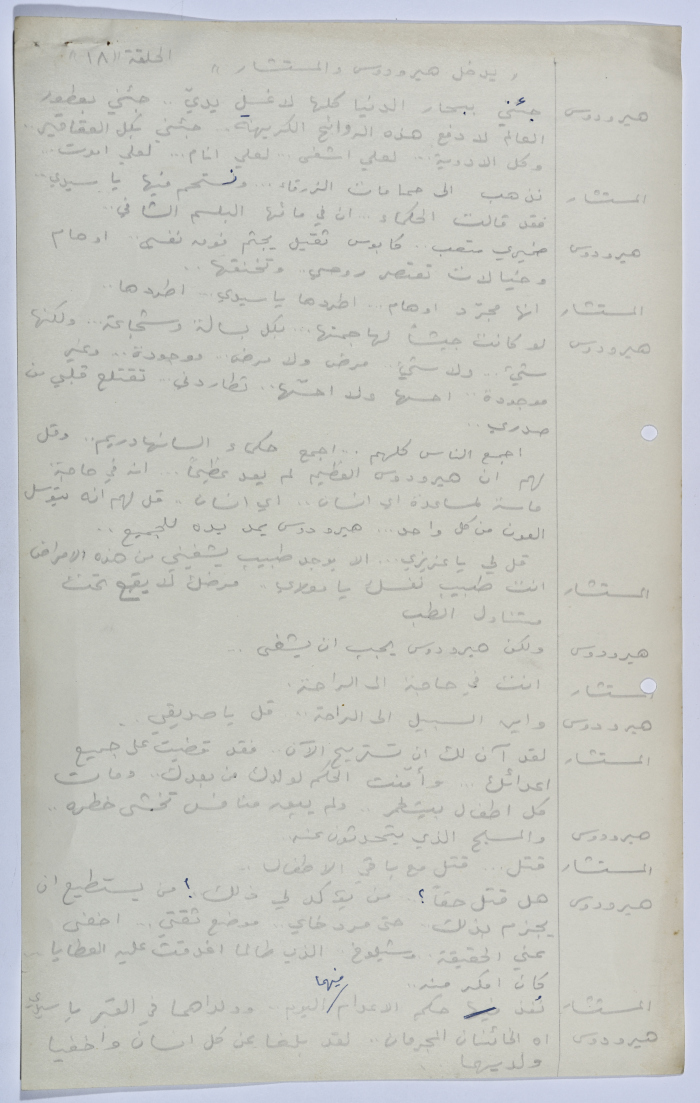 الحلقة "١٨"
" يدخل هيرودوس والمستشار "
هيرودوس جئني ببحار الدنيا كلها لاغسل يديّ .. جئني بعطور
العالم لادفع هذه الروائح الكريهة.. جئني بكل العقاقير..
وكل الادوية... لعلي اشفى.. لعلي انام... لعلي اموت..
المستشار نذهب الى حمامات الزرقاء... ونستحم فيها يا سيدي..
فقد قالت الحكماء.. ان في مائها البلسم الشافي..
هيرودوس ضميري متعب.. كابوس ثقيل يجثم فوق نفسي.. اوهام
وخيالات تعتصر روحي.. وتخنقها..
المستشار انها مجرّد اوهام... اطردها يا سيدي.. اطردها..
هيرودوس لو كانت جيشاً لهاجمتها.. بكل بسالة وشجاعة... ولكنها
شيء... ولا شيء.. مرض ولا مرض.. موجودة... وغير
موجودة.. احسها ولا احسّها.. تطاردني... تقتلع قلبي من
صدري..
اجمع الناس كلهم... اجمع حكماء السانهادريم.. وقل
لهم ان هيرودوس العظيم لم يعد عظيماً... انه في حاجة
ماسة لمساعدة اي انسان.. اي انسان.. قل لهم انه يتوسل
العون من كل واحد... هيرودوس يمد يده للجميع..
قل لي يا عزيزي... الا يوجد طبيب يشفيني من هذه الامراض
المستشار انت طبيب نفسك يا مولاي.. مرضك لا يقع تحت
متناول الطب
هيرودوس ولكن هيرودوس يجب ان يشفى..
المستشار انت في حاجة الى الراحة.
هيرودوس واين السبيل الى الراحة... قل يا صديقي..
المستشار لقد آن لك ان تستريح الآن.. فقد قضيت على جميع
اعدائك... وأمّنت الحكم لولدك من بعدك.. ومات
كل اطفال بيتلحم.. ولم يبق منافس تخشى خطره..
هيرودوس والمسيح الذي يتحدثون عنه
المستشار قتل... قتل مع باقي الاطفال..
هيرودوس هل قتل حقاً؟.. من يؤكد لي ذلك؟ من يستطيع ان
يجزم بذلك.. حتى مردخاي.. موضع ثقتي... اخفى
عني الحقيقة.. وشيلوخ.. الذي طالما اغدقت عليه العطايا..
كان امكر منه..
المستشار نفذ فيهما حكم الاعدام اليوم.. وولداهما في القبر يا سيدي
هيرودوس اه الخائنان المجرمان.. لقد بلغا عن كل انسان واخفيا
ولديهما